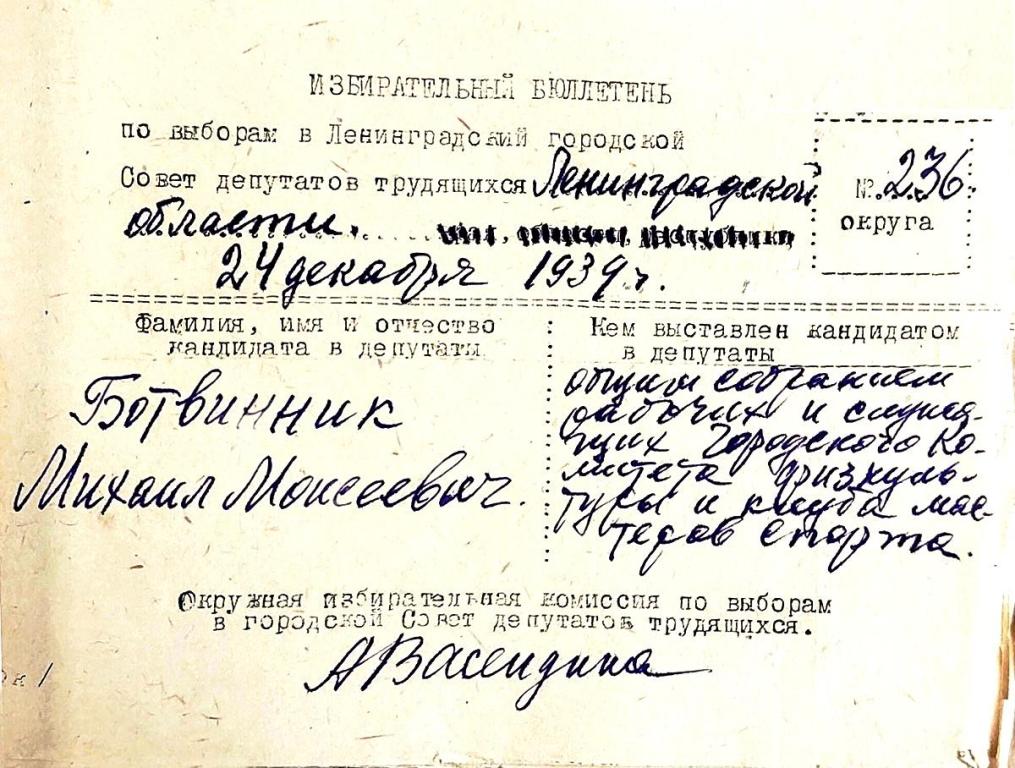 ИЗБИРАТЕЛЬНЫЙ БЮЛЛЕТЕНЬ
по выборам в Ленинградский городской
Совет депутатов трудящихся Ленинградской
области.
24 декабря 1939 г.
№ 236
округа
Фамилия, имя и отчество
кандидата в депутаты
Ботвинник
Михаил Моисеевич.
Кем выставлен кандидатом
в депутаты
общим собранием
рабочих и служа-
щих Городского Ко-
митета физкуль-
туры и клуба мас-
теров спорта.
Окружная избирательная комиссия по выборам
в городской Совет депутатов трудящихся.